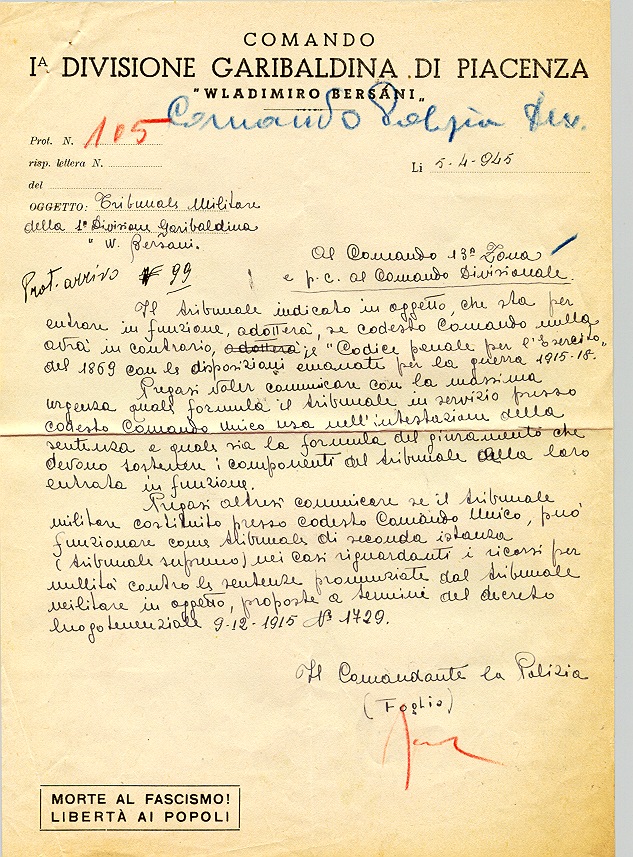 COMANDO
Iª DIVISIONE GARIBALDINA DI PIACENZA
"WLADIMIRO BERSANI"
Comando Polizia Div.
Prot. N. 105
risp. lettera N.
Li 5-4-945
del
OGGETTO: Tribunale Militare
della 1ª Divisione Garibaldina
"W. Bersani.
Al Comando 13ª Zona
e p.c. al Comando Divisionale.
Prot. arrivo N° 99
Il tribunale indicato in oggetto, che sta per
entrare in funzione, adotterà, se codesto Comando nulla
avrà in contrario, adotterà il "Codice penale per l'Esercito"
del 1869 con le disposizioni emanate per la guerra 1915-18.
Pregasi voler comunicare con la massima
urgenza quale formula il tribunale in servizio presso
codesto Comando Unico usa nell'intestazione della
sentenza e quale sia la formula del giuramento che
devono sostenere i componenti del tribunale alla loro
entrata in funzione.
Pregasi altresì comunicare se il tribunale
militare costituito presso codesto Comando Unico, può
funzionare come tribunale di seconda istanza
(tribunale supremo) nei casi riguardanti i ricorsi per
nullità contro le sentenze pronunziate dal tribunale
militare in oggetto, proposte a termini del decreto
luogotenenziale 9-12-1915 N° 1729.
Il Comandante la Polizia
(Foglia)
MORTE AL FASCISMO!
LIBERTÀ AI POPOLI